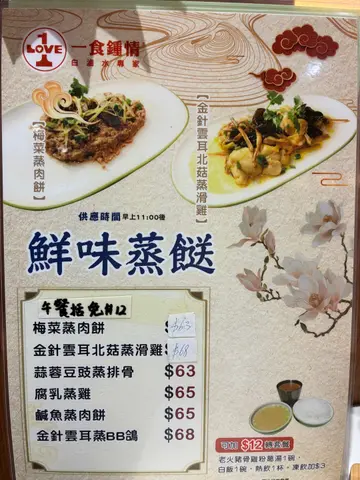 1
LOVE
一食鍾情
白滷水專家
【梅菜蒸肉餅】
【金針雲耳北菇蒸滑雞】
供應時間 早上11:00後
鮮味蒸餸
午餐括免#12
梅菜蒸肉餅 $63
金針雲耳北菇蒸滑雞 $68
蒜蓉豆豉蒸排骨 $63
腐乳蒸雞 $65
鹹魚蒸肉餅 $65
金針雲耳蒸BB鴿 $68
可加$12轉套餐
老火豬骨雞粉葱湯1碗，
白飯1碗、熱飲1杯。凍飲加$3